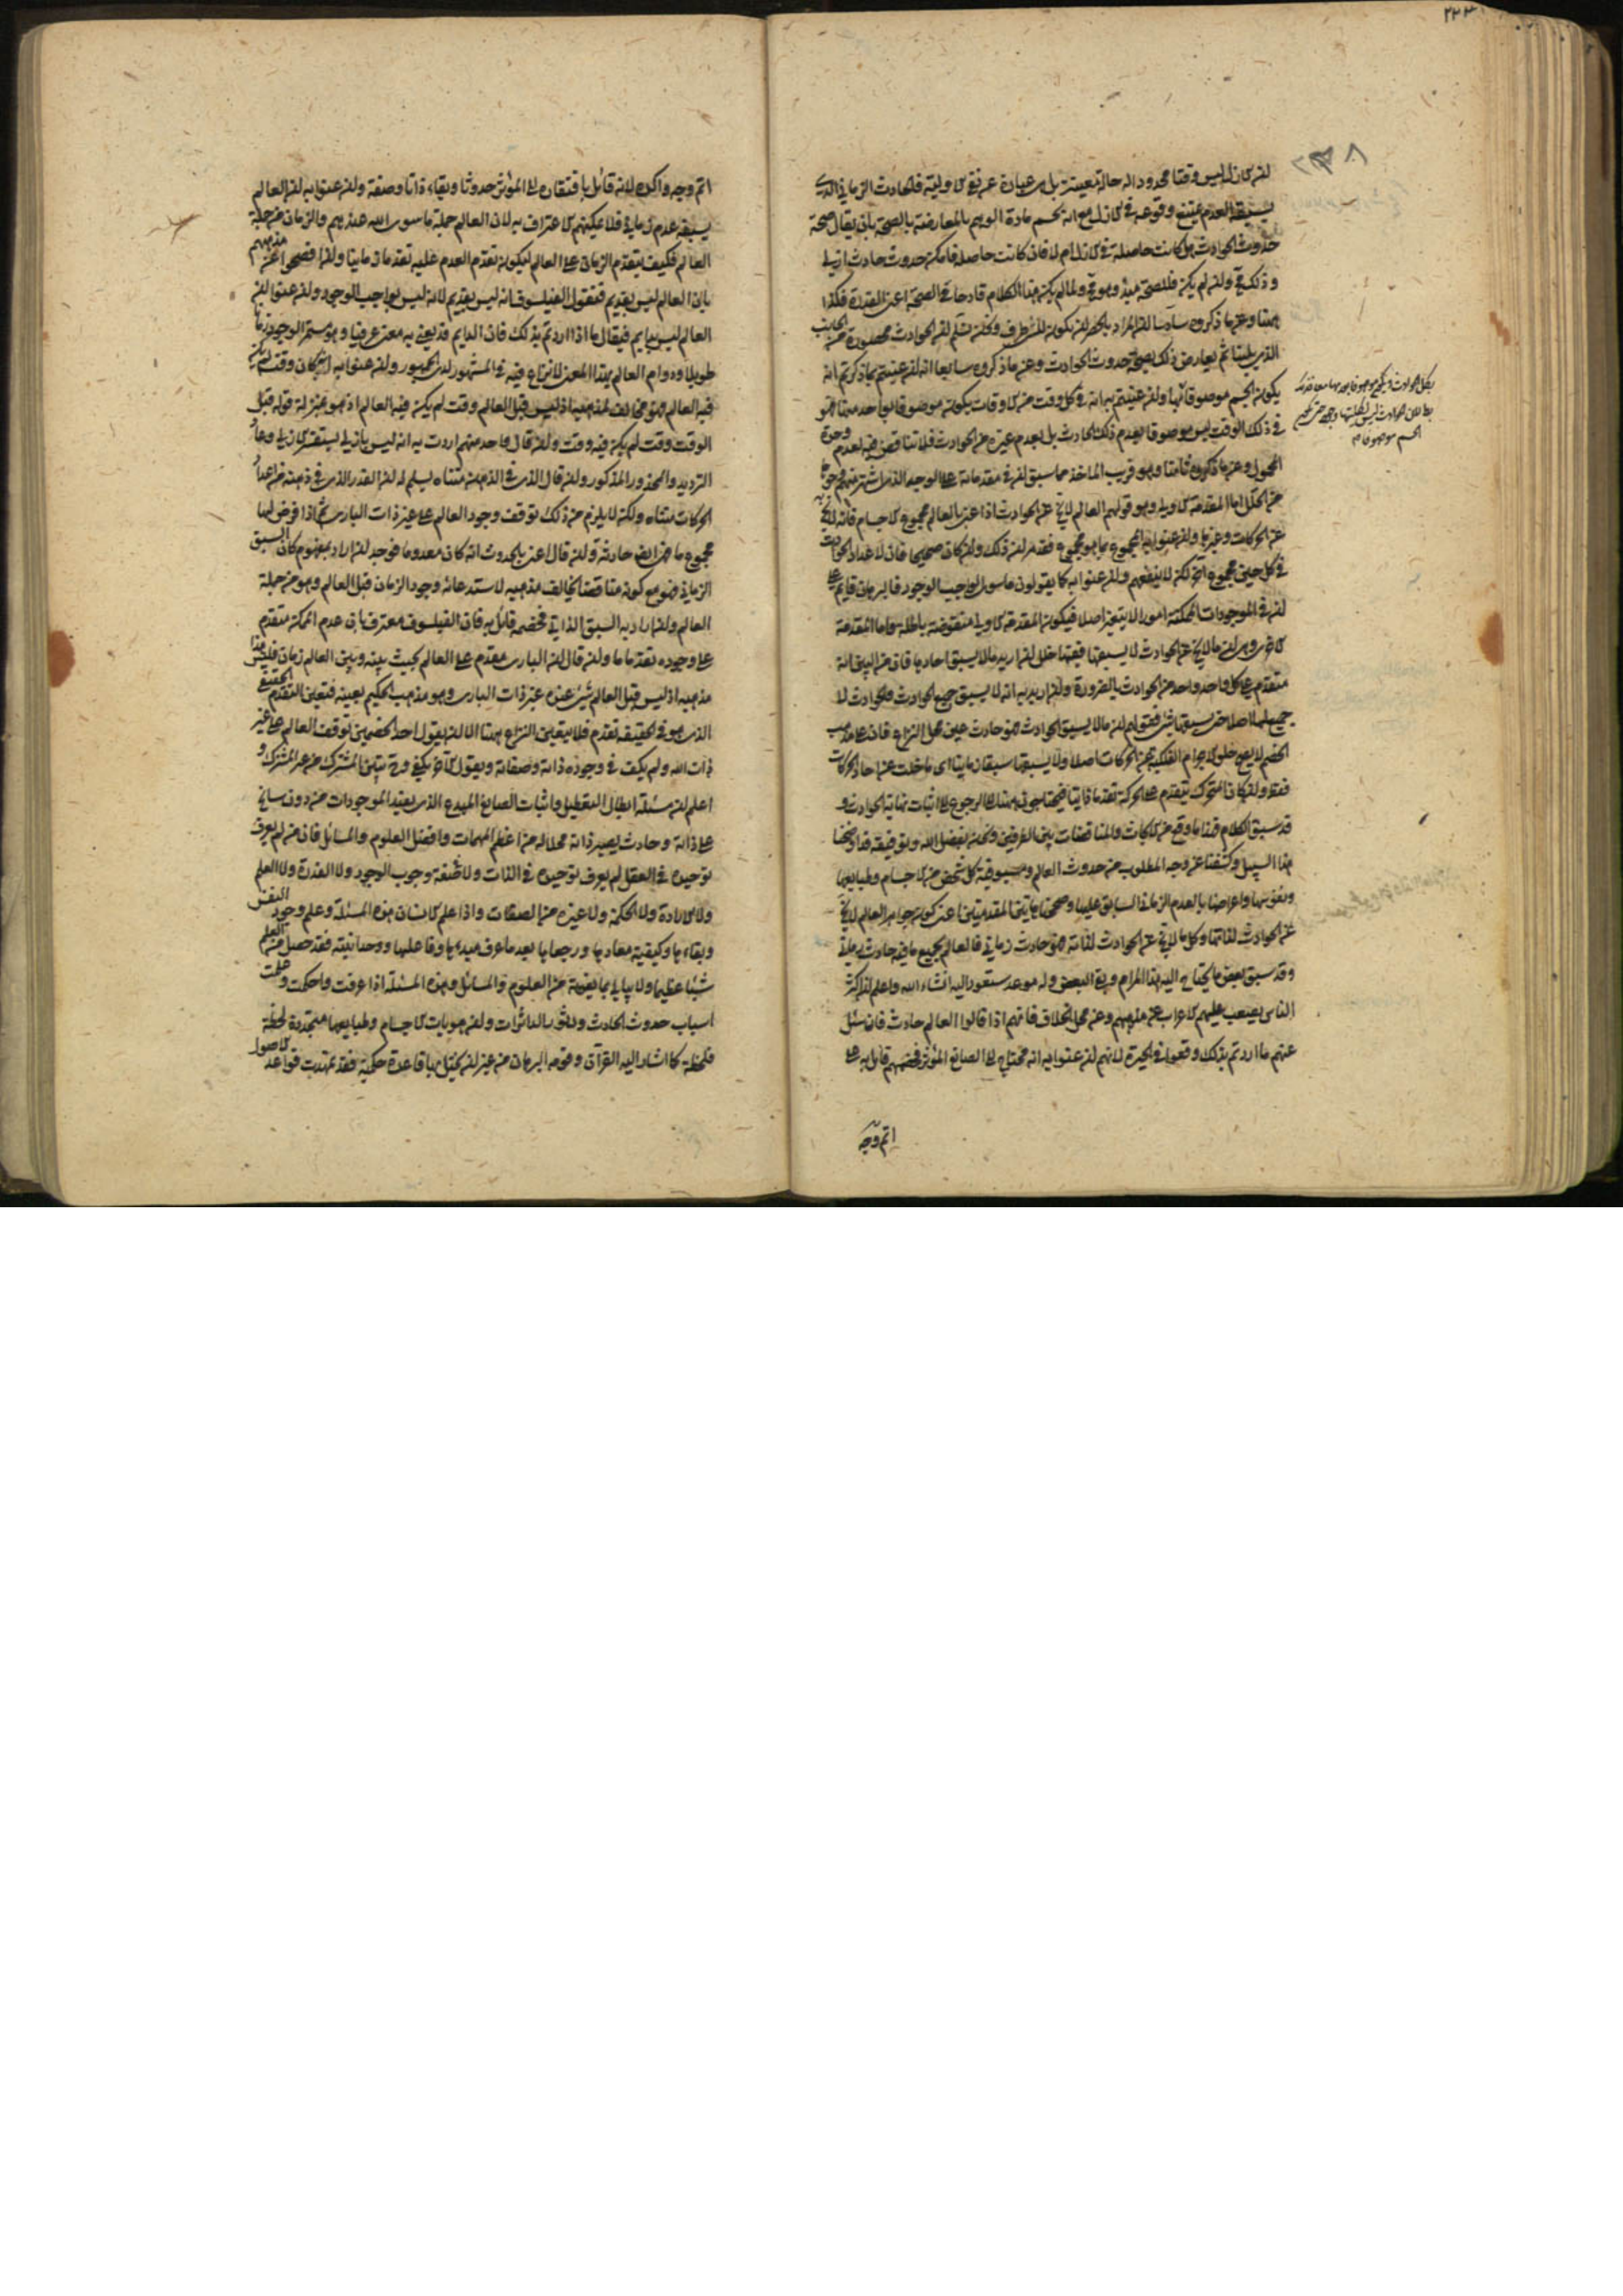 ٢٣٣
لان الازل ليس وقتا محدودا له حالة معينة بل هى عبارة عن نفى الاولية فالحادث الزمانى الذى
يسبقه العدم يمتنع وقوعه فى الازل مع انه يحسم مادة الوهم بالمعارضة بالصحة بان يقال صحة
حدوث الحوادث هل كانت حاصلة فى الازل ام لا فان كانت حاصلة فامكن حدوث حادث ازلى
وذلك مح وان لم يكن فللصحة مبدؤ وهو مح ولما لم يكن هذا الكلام قادحا فى الصحة اعنى المقدرة فكذا
هنا وعن ما ذكروه سادسا ان المراد بالحصر ان يكون للشىء طرف ونحن نسلم ان الحوادث محصورة من الجانب
الذى يلينا ثم يعارض ذلك بصحة حدوث الحوادث وعن ما ذكروه سابعا انه ان عنيتم بما ذكرتم انه
يكون الجسم موصوفا بها وان عنيتم به انه فى كل وقت من الاوقات يكون موصوفا بواحد منها فهو
فى ذلك الوقت ليس موصوفا بعدم ذلك الحادث بل بعدم غيره من الحوادث فلا تناقض فيه لعدم وحدة
المحمول وعن ما ذكروه ثامنا وهو قريب الماخذ مما سبق ان فى مقدماته على الوجه الذى اشتهر منهم وجوها
من الخلل اما المقدمة الاولى وهو قولهم العالم لا يخ عن الحوادث اذا عنى بالعالم مجموع الاجسام فانه لا يخ
عن الحركات وغيرها وان عنوا به المجموع بما هو مجموع فقد مر ان ذلك وان كان صحيحا فان لاعداد الحوادث
فى كل حين مجموع اخر لكن لا ينفعهم وان عنوا به كما يقولون ما سوى الواجب الوجود فالبرهان قايم على
ان فى الموجودات الممكنة امورا لا يتغير اصلا فيكون المقدمة الاولى منقوضة باطلة واما المقدمة
الاخرى وهى ان ما لا يخ عن الحوادث لا يسبقها ففيها خلل ان اريد ما لا يسبق احادها فان من البين انه
متقدم على كل واحد واحد من الحوادث بالضرورة وان اريد به انه لا يسبق جميع الحوادث فالحوادث لا
جميع لها اصلا حتى يسبقها شىء فقولهم ان ما لا يسبق الحوادث فهو حادث عين محل النزاع فان على مذهب
الخصم لا يصح خلو الاجرام الفلكية عن الحركات اصلا ولا يسبقها سبقا زمانيا اى ما خلت عن احاد الحركات
فقط وان كان المتحرك يتقدم على الحركة تقدما ذاتيا فيحتاجون هنا الى الرجوع الى اثبات نهاية الحوادث و
قد سبق الكلام فيه وما وقع من الابحاث والمناقضات بين الفريقين ونحن بفضل الله وتوفيقه قد اوضحنا
هذا السبيل وكشفنا عن وجه المطلوب من حدوث العالم ومسبوقية كل شخص من الاجسام وطبايعها
ونفوسها واعراضها بالعدم الزمانى السابق عليها وصححنا هاتين المقدمتين اعنى كون جواهر العالم لا يخ
عن الحوادث لذاتها وكل ما لا يخ عن الحوادث لذاته فهو حادث زمانى فالعالم بجميع ما فيه حادث زمانى
وقد سبق بعض ما يحتاج اليه هذا المرام وبقى البعض وله موعد ستعود اليه انشاء الله واعلم ان اكثر
الناس يصعب عليهم الاعراب عن مذهبهم وعن محل الخلاف فانهم اذا قالوا العالم حادث فان سئل
عنهم ما اردتم بذلك وقعوا فى الحيرة لانهم ان عنوا به انه محتاج الى الصانع المؤثر فخصمهم قايل به على
اتم وجه
اتم وجه واكده لانه قائل بافتقاره الى المؤثر حدوثا وبقاء ذاتا وصفة وان عنوا به ان العالم
يسبقه عدم زمانى فلا يمكنهم الاعتراف به لان العالم جملة ما سوى الله عندهم والزمان من جملة
العالم فكيف يتقدم الزمان على العالم ليكون تقدم العدم عليه تقدما زمانيا وان افصحوا عن مذهبهم
بان العالم ليس بقديم فنقول الفيلسوف انه ليس بقديم لانه ليس بواجب الوجود وان عنوا ان
العالم ليس بدايم فيقال ماذا اردتم بذلك فان الدايم قد يعنى به معنى عرفيا وهو مستمر الوجود زمانا
طويلا ودوام العالم بهذا المعنى لا نزاع فيه فى المشهور لدى الجمهور وان عنوا به انه كان وقت لم يكن
فيه العالم فهو مخالف لمذهبه اذ ليس قبل العالم وقت لم يكن فيه العالم اذ هو بمنزلة قوله قبل
الوقت وقت لم يكن فيه وقت وان قال واحد منهم اردت به انه ليس بازلى يستفسر الازلى وعاد
الترديد والمحذور المذكور وان قال الذى فى الذهن متناه يسلم له ان القدر الذى فى ذهنه من اعداد
الحركات متناه ولكن لا يلزم من ذلك توقف وجود العالم على غير ذات البارى ثم اذا فرض لها
مجموع ما فهو ايضا حادثة وان قال اعنى بالحدوث انه كان معدوما فوجد ان اراد بمفهوم كان السبق
الزمانى فهو مع كونه متناقضا يخالف مذهبه لاستدعائه وجود الزمان قبل العالم وهو من جملة
العالم وان اراد به السبق الذاتى فخصمه قائل به فان الفيلسوف معترف بان عدم الممكن متقدم
على وجوده تقدما ما وان قال ان البارى مقدم على العالم بحيث بينه وبين العالم زمان فليس هذا
مذهبه اذ ليس قبل العالم شىء عندهم غير ذات البارى وهو مذهب الحكيم بعينه فتعين التقدم الحقيقى
الذى هو فى الحقيقة تقدم فلا يتعين النزاع هنا الا ان يقول احد الخصمين توقف العالم على غير
ذات الله ولم يكف فى وجوده ذاته وصفاته ويقول الاخر يكفى وح يتبين المشرك من غير المشرك و
اعلم ان مسئلة ابطال التعطيل واثبات الصانع المبدع الذى يفيد الموجودات من دون سانح
على ذاته وحادث يصير ذاته محلا له من اعظم المهمات وافضل العلوم والمسائل فان من لم يعرف
توحيده فى الفعل لم يعرف توحيده فى الذات ولا صفة وجوب الوجود ولا القدرة ولا العلم
ولا الارادة ولا الحكمة ولا غيره من الصفات واذا علم الانسان هذه المسئلة وعلم وجود النفس
وبقاءها وكيفية معادها ورجعاها بعد ما عرف مبدءها وفاعلها ووحدانيته فقد حصل من العلم
شيئا عظيما ولا يبالى بما يفوته من العلوم والمسائل وهذه المسئلة اذا عرفت واحكمت وعلمت
اسباب حدوث الحادث ودثور الداثرات وان هويات الاجسام وطبايعها متجددة لحظة
فلحظة كما اشار اليه القرآن وقومه البرهان من غير ان يختل بها قاعدة حكمية فقد تمهدت قواعد الاصول